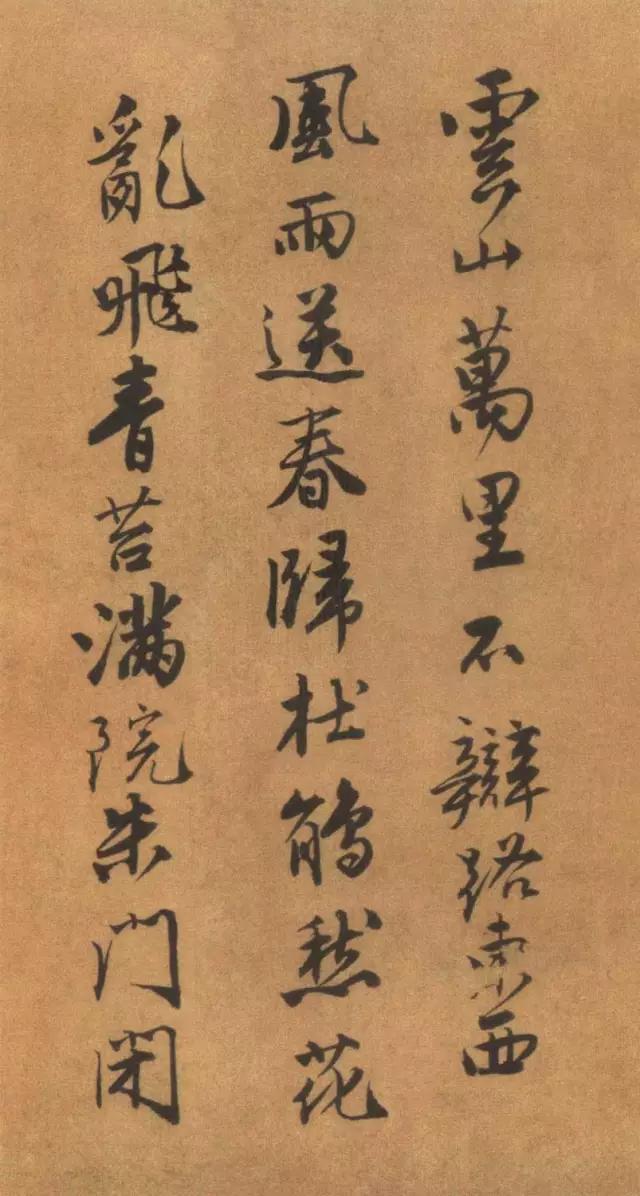 雲山萬里不辯路東西
風雨送春歸杜鵑愁花
亂飛青苔滿院朱門閉